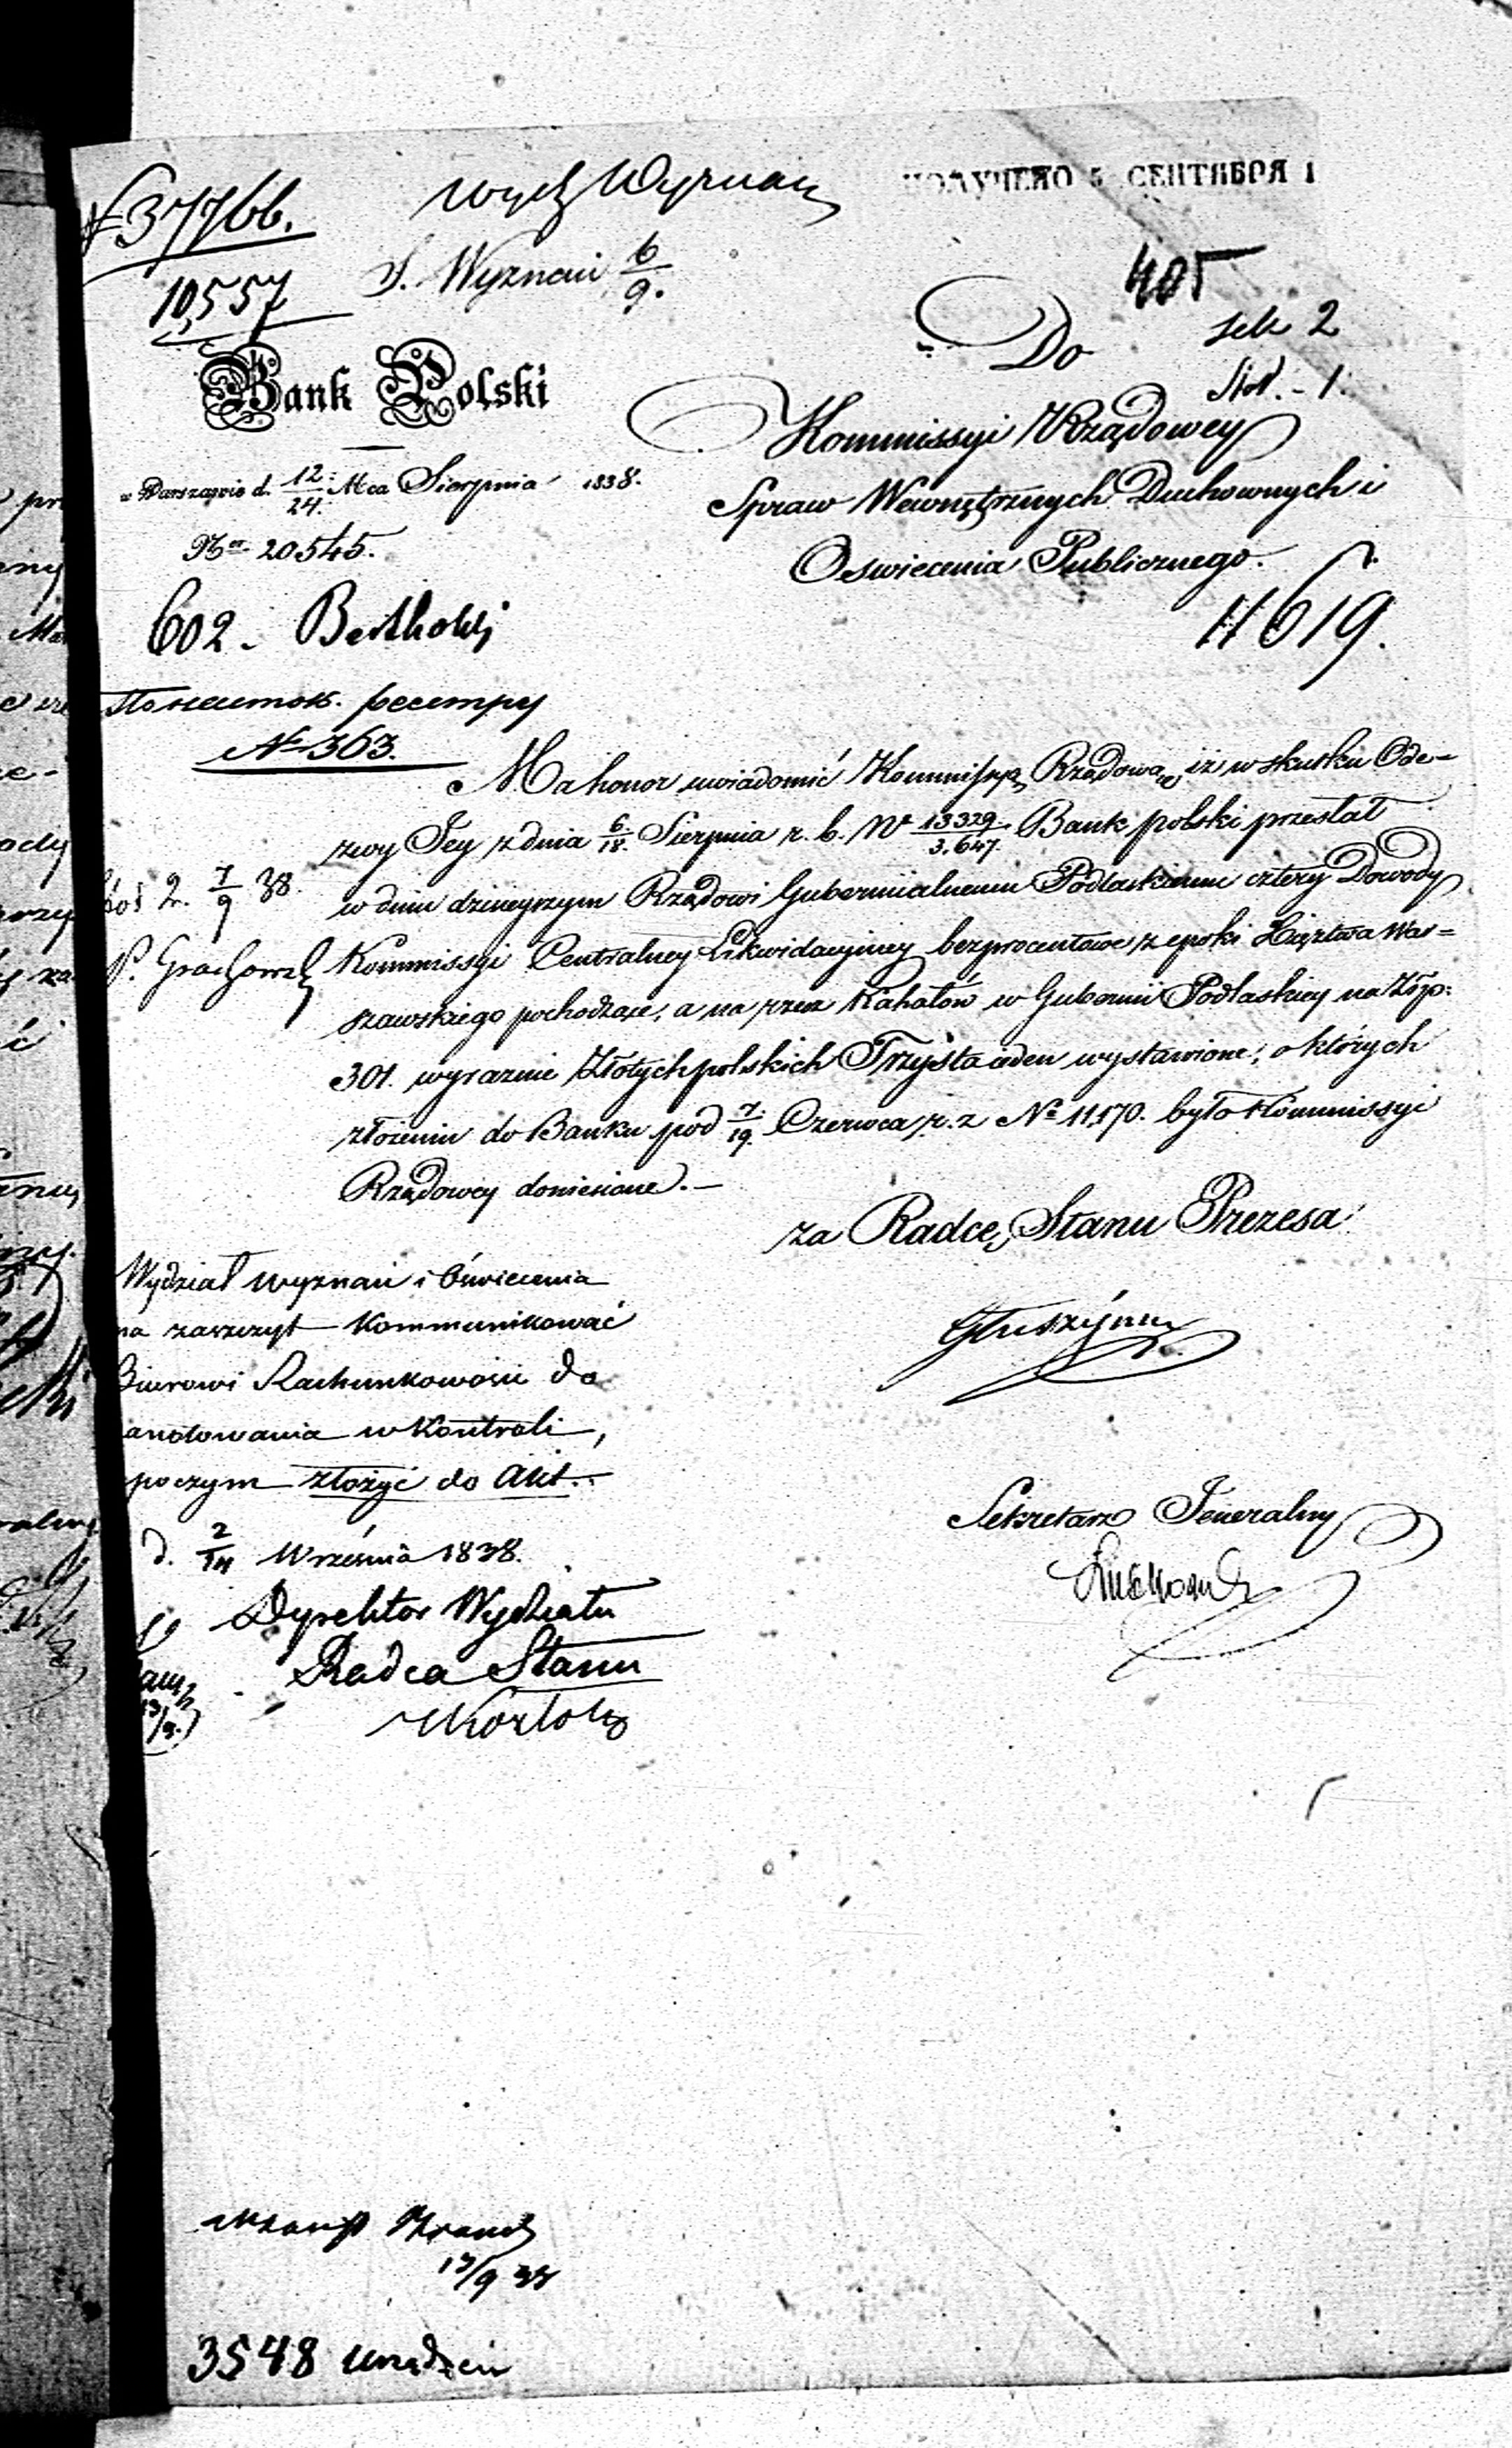 37766.
10,557
Wyznań
ПОЛУЧЕНО 5 СЕНТЯБРЯ 1
S. Wyznań 6/9.
405
sek 2
Bank Polski
Do
Kommissyi Rządowey
Spraw Wewnętrznych Duchownych i
Oswiecenia Publicznego.
w Warszawie d. 12/24 Mca Sierpnia 1838.
Nr 20545.
602.
11619.
№ 363.
Ma honor uwiadomić Kommissyą Rządową, iż w skutku Ode-
zwy Jey z dnia 6/18 Sierpnia r. b. Nr 13329/3,647 Bank polski przesłał
w dniu dzisieyszym Rządowi Gubernialnemu Podlaskiemu cztery Dowody
Kommissyi Centralney Likwidacyiney bezprocentowe z epoki Xięztwa War=
szawskiego pochodzące, a na rzecz Kahałów w Gubernii Podlaskiey na Złp:
301. wyraznie Złotych polskich Trzysta ieden wystawione, o których
złożeniu do Banku pod 7/19 Czerwca r. z № 11,170. było Kommissyi
Rządowey doniesione.—
2. 7/9 38.
za Radcę Stanu Prezesa
Wydział wyznań i Oświecenia
ma zaszczyt kommunikować
Biurowi Rachunkowości do
anotowania w Kontroli,
poczym złożyć do Akt.
d. 2/14 Września 1838.
Dyrektor Wydziału
Radca Stanu
Sekretarz Jeneralny
13/9 38
3548